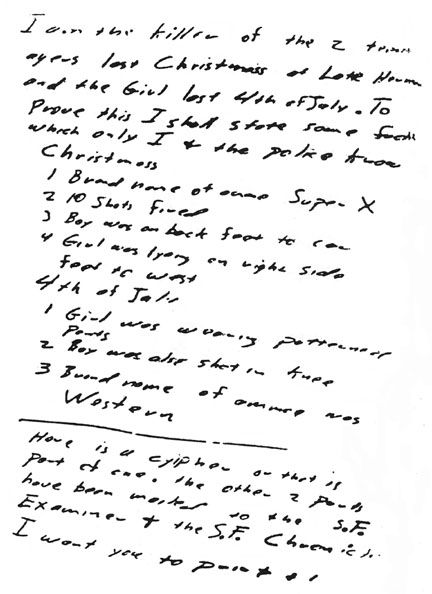 I am the killer of the 2 teen
agers last Christmass at Lake Herman
and the Girl last 4th of July. To
Prove this I shall state some facts
which only I + the police know
Christmass
1 Brand name of ammo Super X
2 10 Shots fired
3 Boy was on back feet to car
4 Girl was lyeing on right side
feet to west
4th of July
1 Girl was wearing patterned
pants
2 Boy was also shot in knee
3 Brand name of ammo was
Western
Here is a cyipher or that is
part of one. the other 2 parts
have been mailed to the S.F.
Examiner + the S.F. Chronicle
I want you to print